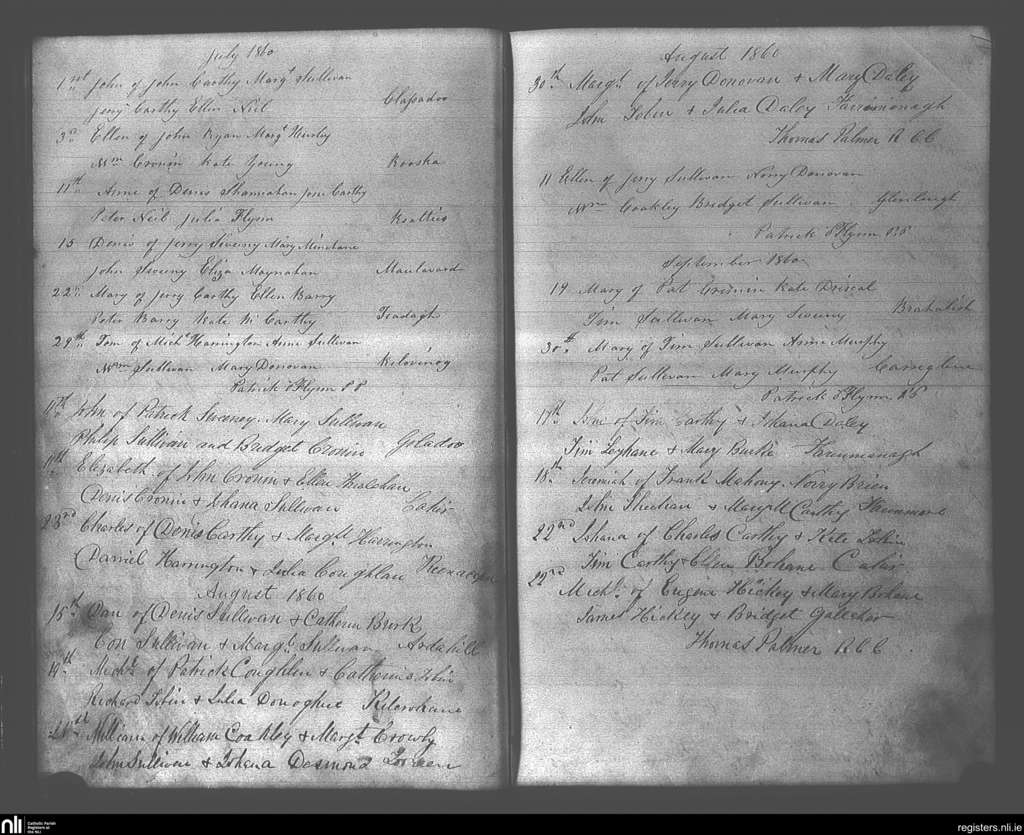 July 1860
1st John of John Carthy Margt Sullivan
Jerry Carthy Ellen Neil
3d Ellen of John Ryan Margt Hurley
Wm Cronin Kate Young Rooska
11th Anne of Denis Shannahan Jane Carthy
Peter Neil Julia Flynn
15 Denis of Jerry Sweeny Mary Minehane
John Sweeny Eliza Moynahan Maulavard
22d Mary of Jerry Carthy Ellen Barry
Peter Barry Kate McCarthy
29th Tom of Michl Harrington Anne Sullivan
Wm Sullivan Mary Donovan Kilovinog
Patrick O'Flynn PP
11th John of Patrick Sweeney Mary Sullivan
Philip Sullivan and Bridget Cronin Goladoo
Elizabeth of John Cronin & Ellen
Denis Cronin & Johana Sullivan Cahir
23rd Charles of Denis Carthy & Margtt Harrington
Daniel Harrington & Julia Coughlan
August 1860
15th Dan of Denis Sullivan & Catherin Burk
Con Sullivan & Margt Sullivan Ardahill
Michl of Patrick Coughlan & Catherine Tobin
Richard Tobin & Julia Donoghue Kilcrohane
William of William Coakley & Margt Crowly
John Sullivan & Johana Desmond
August 1860
30th Margt of Jerry Donovan & Mary Daley
John Tobin & Julia Daley Farrimanagh
Thomas Palmer R C C
11 Ellen of Jerry Sullivan Nory Donovan
Wm Coakley Bridget Sullivan Glenlough
Patrick O'Flynn PP
September 1860
19 Mary of Pat Cronin Kate Driscal
Tim Sullivan Mary Sweeny Brahalish
30th Mary of Tim Sullivan Anne Murphy
Pat Sullivan Mary Murphy
Patrick O'Flynn PP
17th of Tim Carthy & Johana Daley
Tim Leyhane & Mary Burke Farrimanagh
18th Jeremiah of Frank Mahony Norry Brien
John Sheehan & Margtt Carthy
22nd Johana of Charles Carthy & Kate Tobin
Tim Carthy & Ellen Bohane Cahir
22rd Michl of Eugene Hickey & Mary Bohane
James Hickley & Bridget
Thomas Palmer R C C
nli
Catholic Parish
Registers at
the NLI
registers.nli.ie